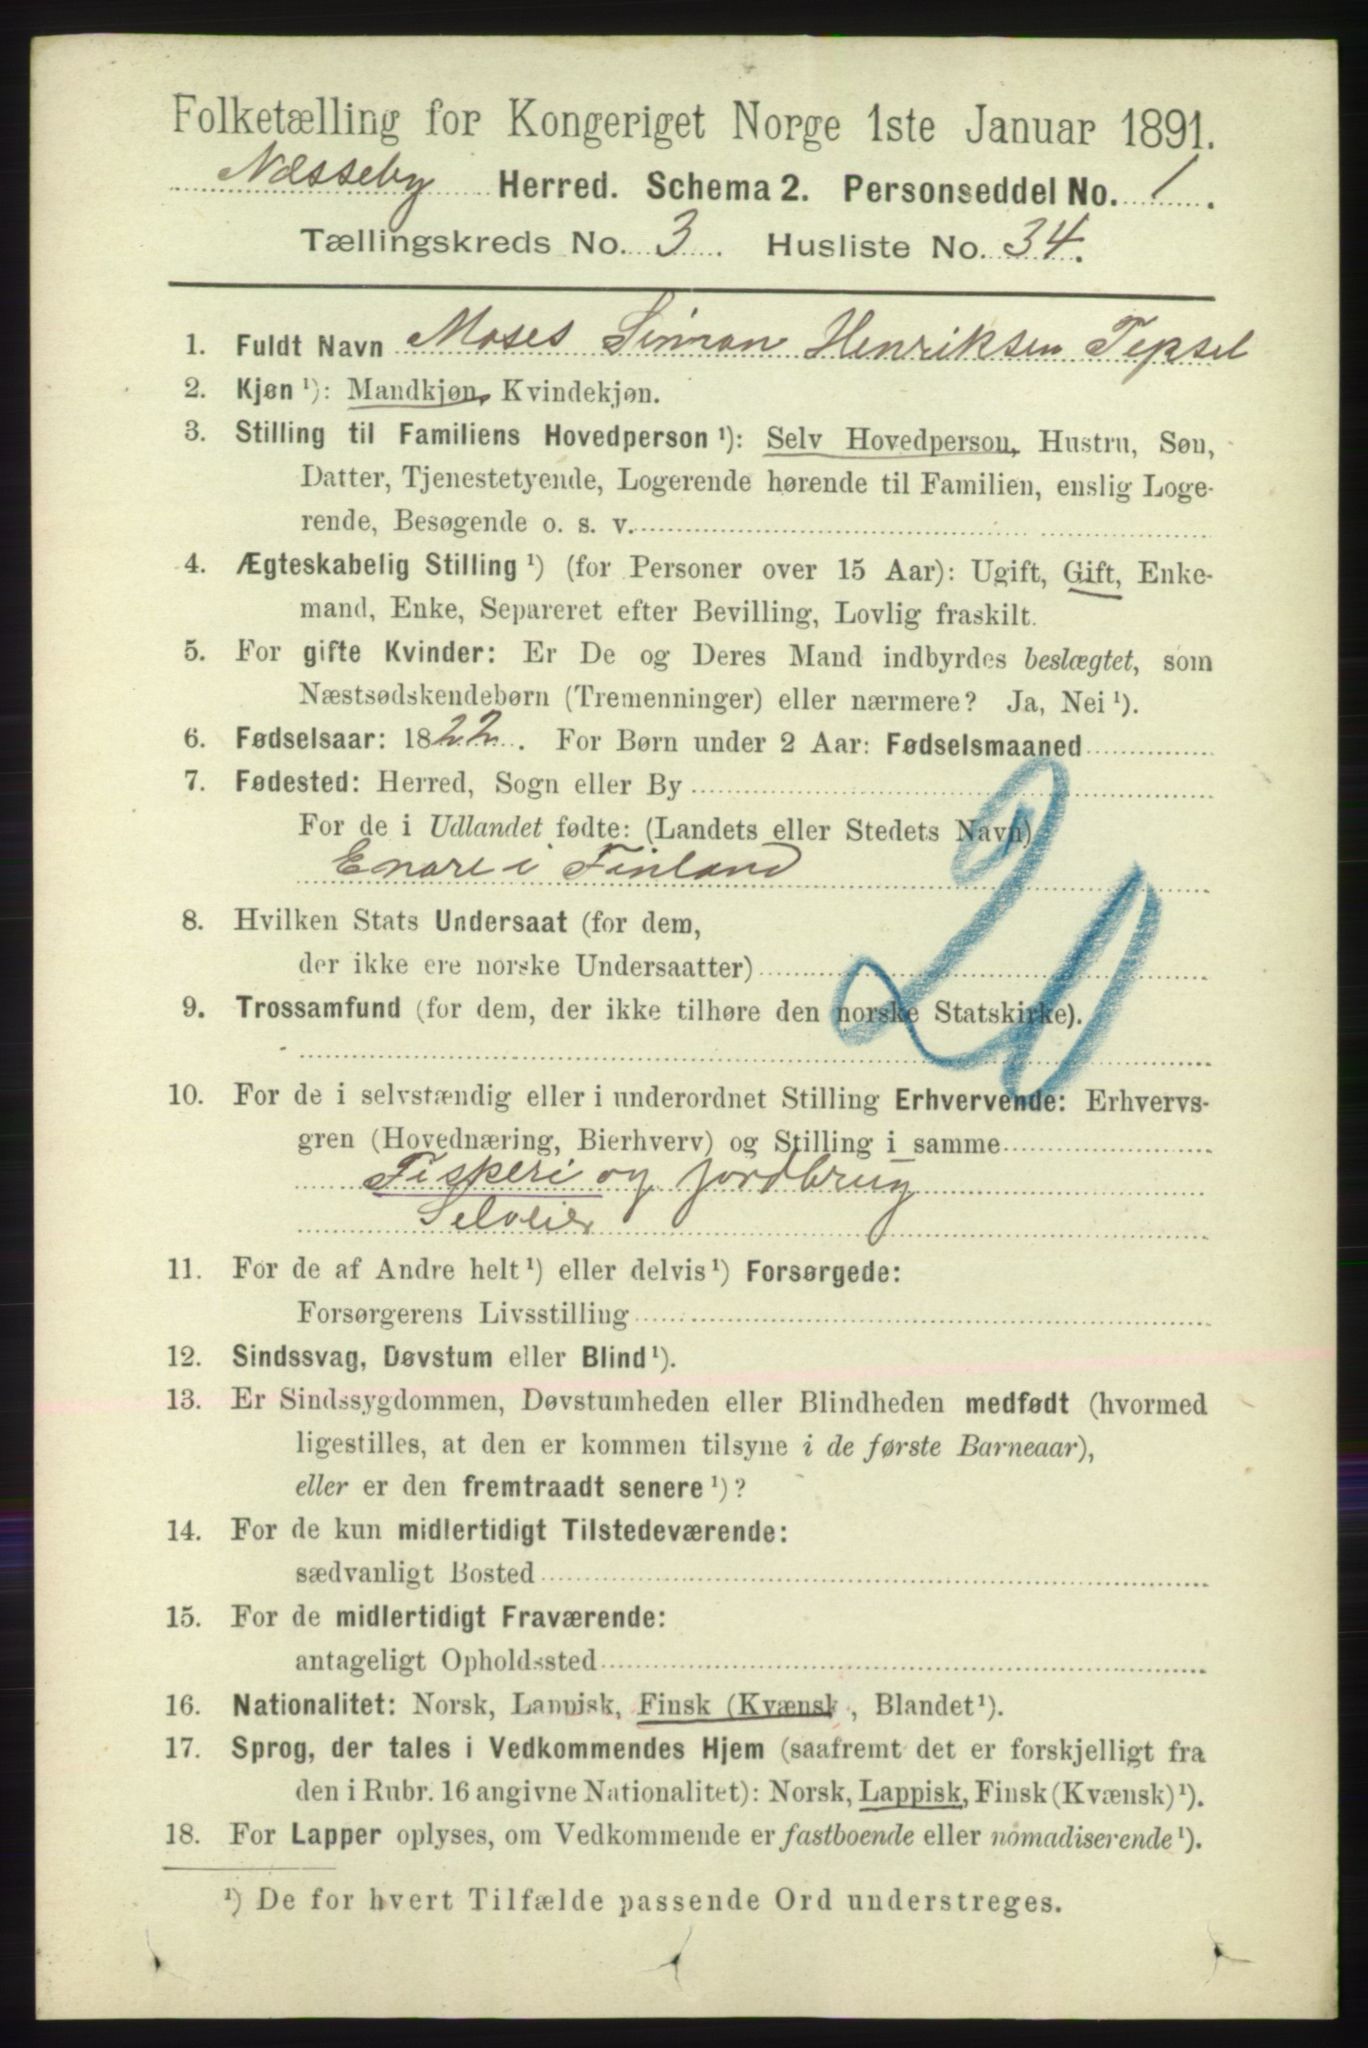 Folketælling for Kongeriget Norge 1ste Januar 1891.
Næsseby Herred. Schema 2. Personseddel No. 1.
Tællingskreds No. 3. Husliste No. 34.
1. Fuldt Navn Moses Simon Henriksen Tepsel
2. Kjøn ¹): Mandkjøn, Kvindekjøn.
3. Stilling til Familiens Hovedperson ¹): Selv Hovedperson, Hustru, Søn,
Datter, Tjenestetyende, Logerende hørende til Familien, enslig Loge-
rende, Besøgende o. s. v.
4. Ægteskabelig Stilling ¹) (for Personer over 15 Aar): Ugift, Gift, Enke-
mand, Enke, Separeret efter Bevilling, Lovlig fraskilt.
5. For gifte Kvinder: Er De og Deres Mand indbyrdes beslægtet, som
Næstsødskendebørn (Tremenninger) eller nærmere? Ja, Nei ¹).
6. Fødselsaar: 1822. For Børn under 2 Aar: Fødselsmaaned
7. Fødested: Herred, Sogn eller By
For de i Udlandet fødte: (Landets eller Stedets Navn)
Enare i Finland
20
8. Hvilken Stats Undersaat (for dem,
der ikke ere norske Undersaatter)
9. Trossamfund (for dem, der ikke tilhøre den norske Statskirke).
10. For de i selvstændig eller i underordnet Stilling Erhvervende: Erhvervs-
gren (Hovednæring, Bierhverv) og Stilling i samme
Fiskeri og jordbrug
Selveier
11. For de af Andre helt ¹) eller delvis ¹) Forsørgede:
Forsørgerens Livsstilling
12. Sindssvag, Døvstum eller Blind ¹).
13. Er Sindssygdommen, Døvstumheden eller Blindheden medfødt (hvormed
ligestilles, at den er kommen tilsyne i de første Barneaar),
eller er den fremtraadt senere ¹)?
14. For de kun midlertidigt Tilstedeværende:
sædvanligt Bosted
15. For de midlertidigt Fraværende:
antageligt Opholdssted
16. Nationalitet: Norsk, Lappisk, Finsk (Kvænsk), Blandet ¹).
17. Sprog, der tales i Vedkommendes Hjem (saafremt det er forskjelligt fra
den i Rubr. 16 angivne Nationalitet): Norsk, Lappisk, Finsk (Kvænsk) ¹).
18. For Lapper oplyses, om Vedkommende er fastboende eller nomadiserende ¹).
¹) De for hvert Tilfælde passende Ord understreges.